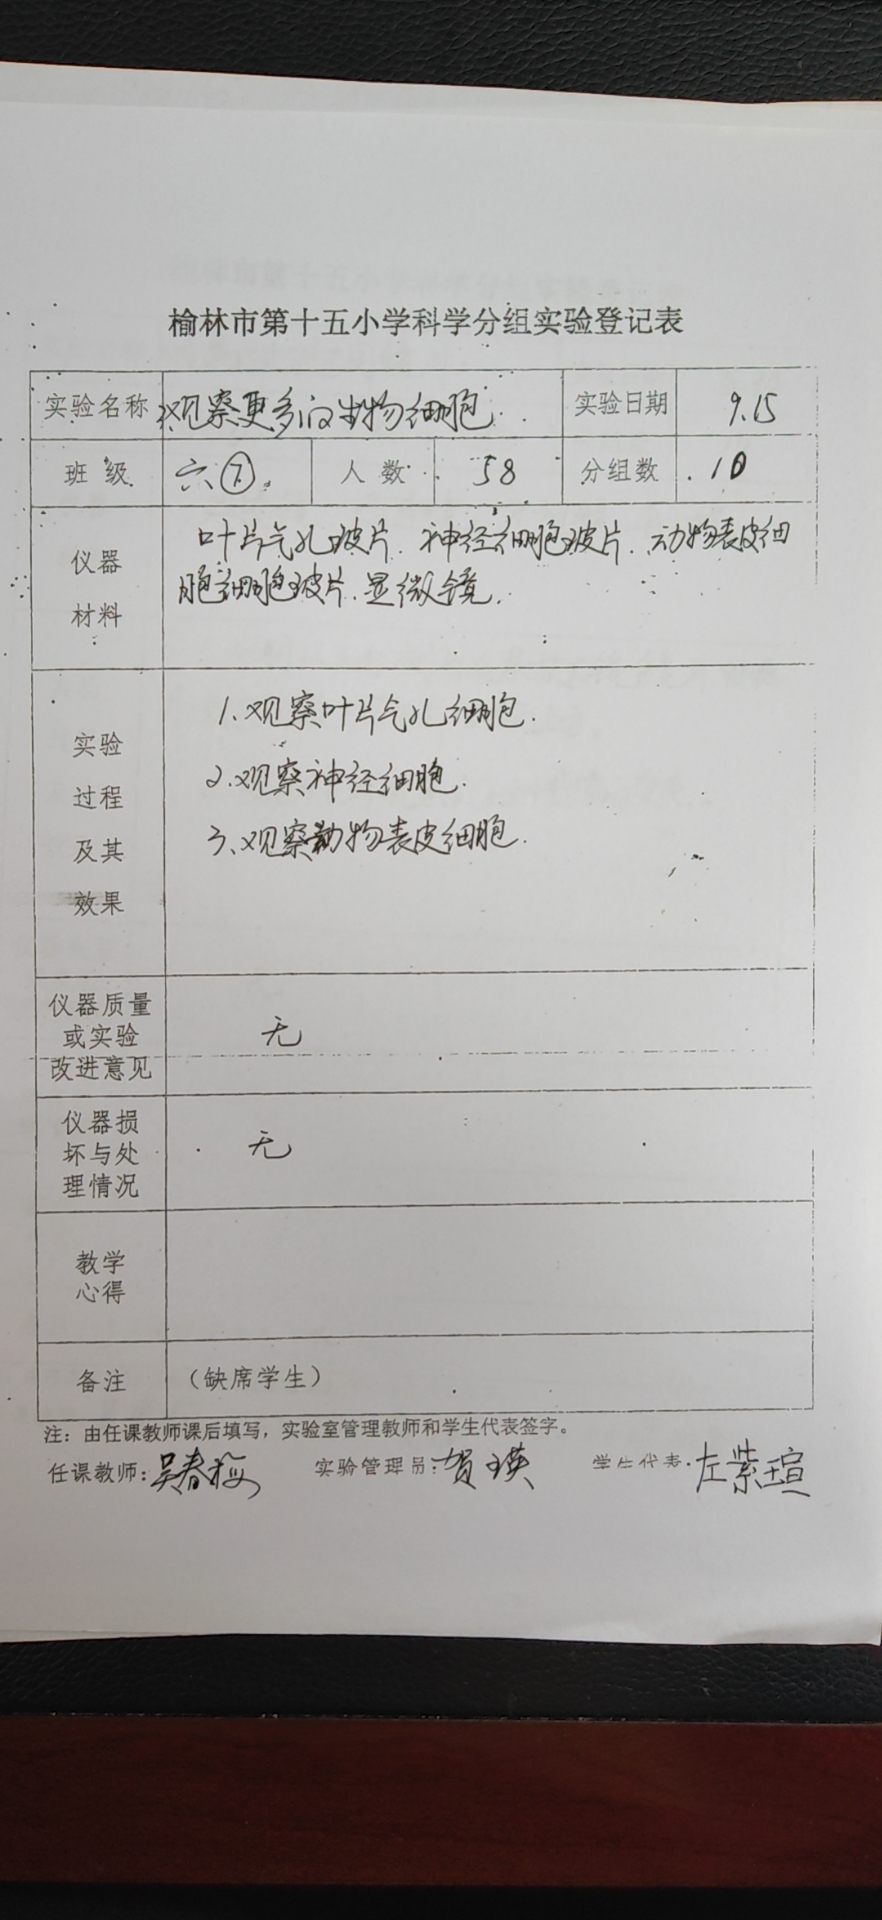 榆林市第十五小学科学分组实验登记表
实验名称 观察更多的生物细胞. 实验日期 9.15
班级 六⑦. 人数 58 分组数 10
仪器
材料
叶片气孔玻片. 神经细胞玻片. 动物表皮细
胞细胞玻片. 显微镜.
实验
过程
及其
效果
1.观察叶片气孔细胞.
2.观察神经细胞.
3.观察动物表皮细胞.
仪器质量
或实验
改进意见
无
仪器损
坏与处
理情况
无
教学
心得
备注 (缺席学生)
注：由任课教师课后填写，实验室管理教师和学生代表签字。
任课教师：吴春梅 实验管理员：贺瑛 学生代表：左紫瑄